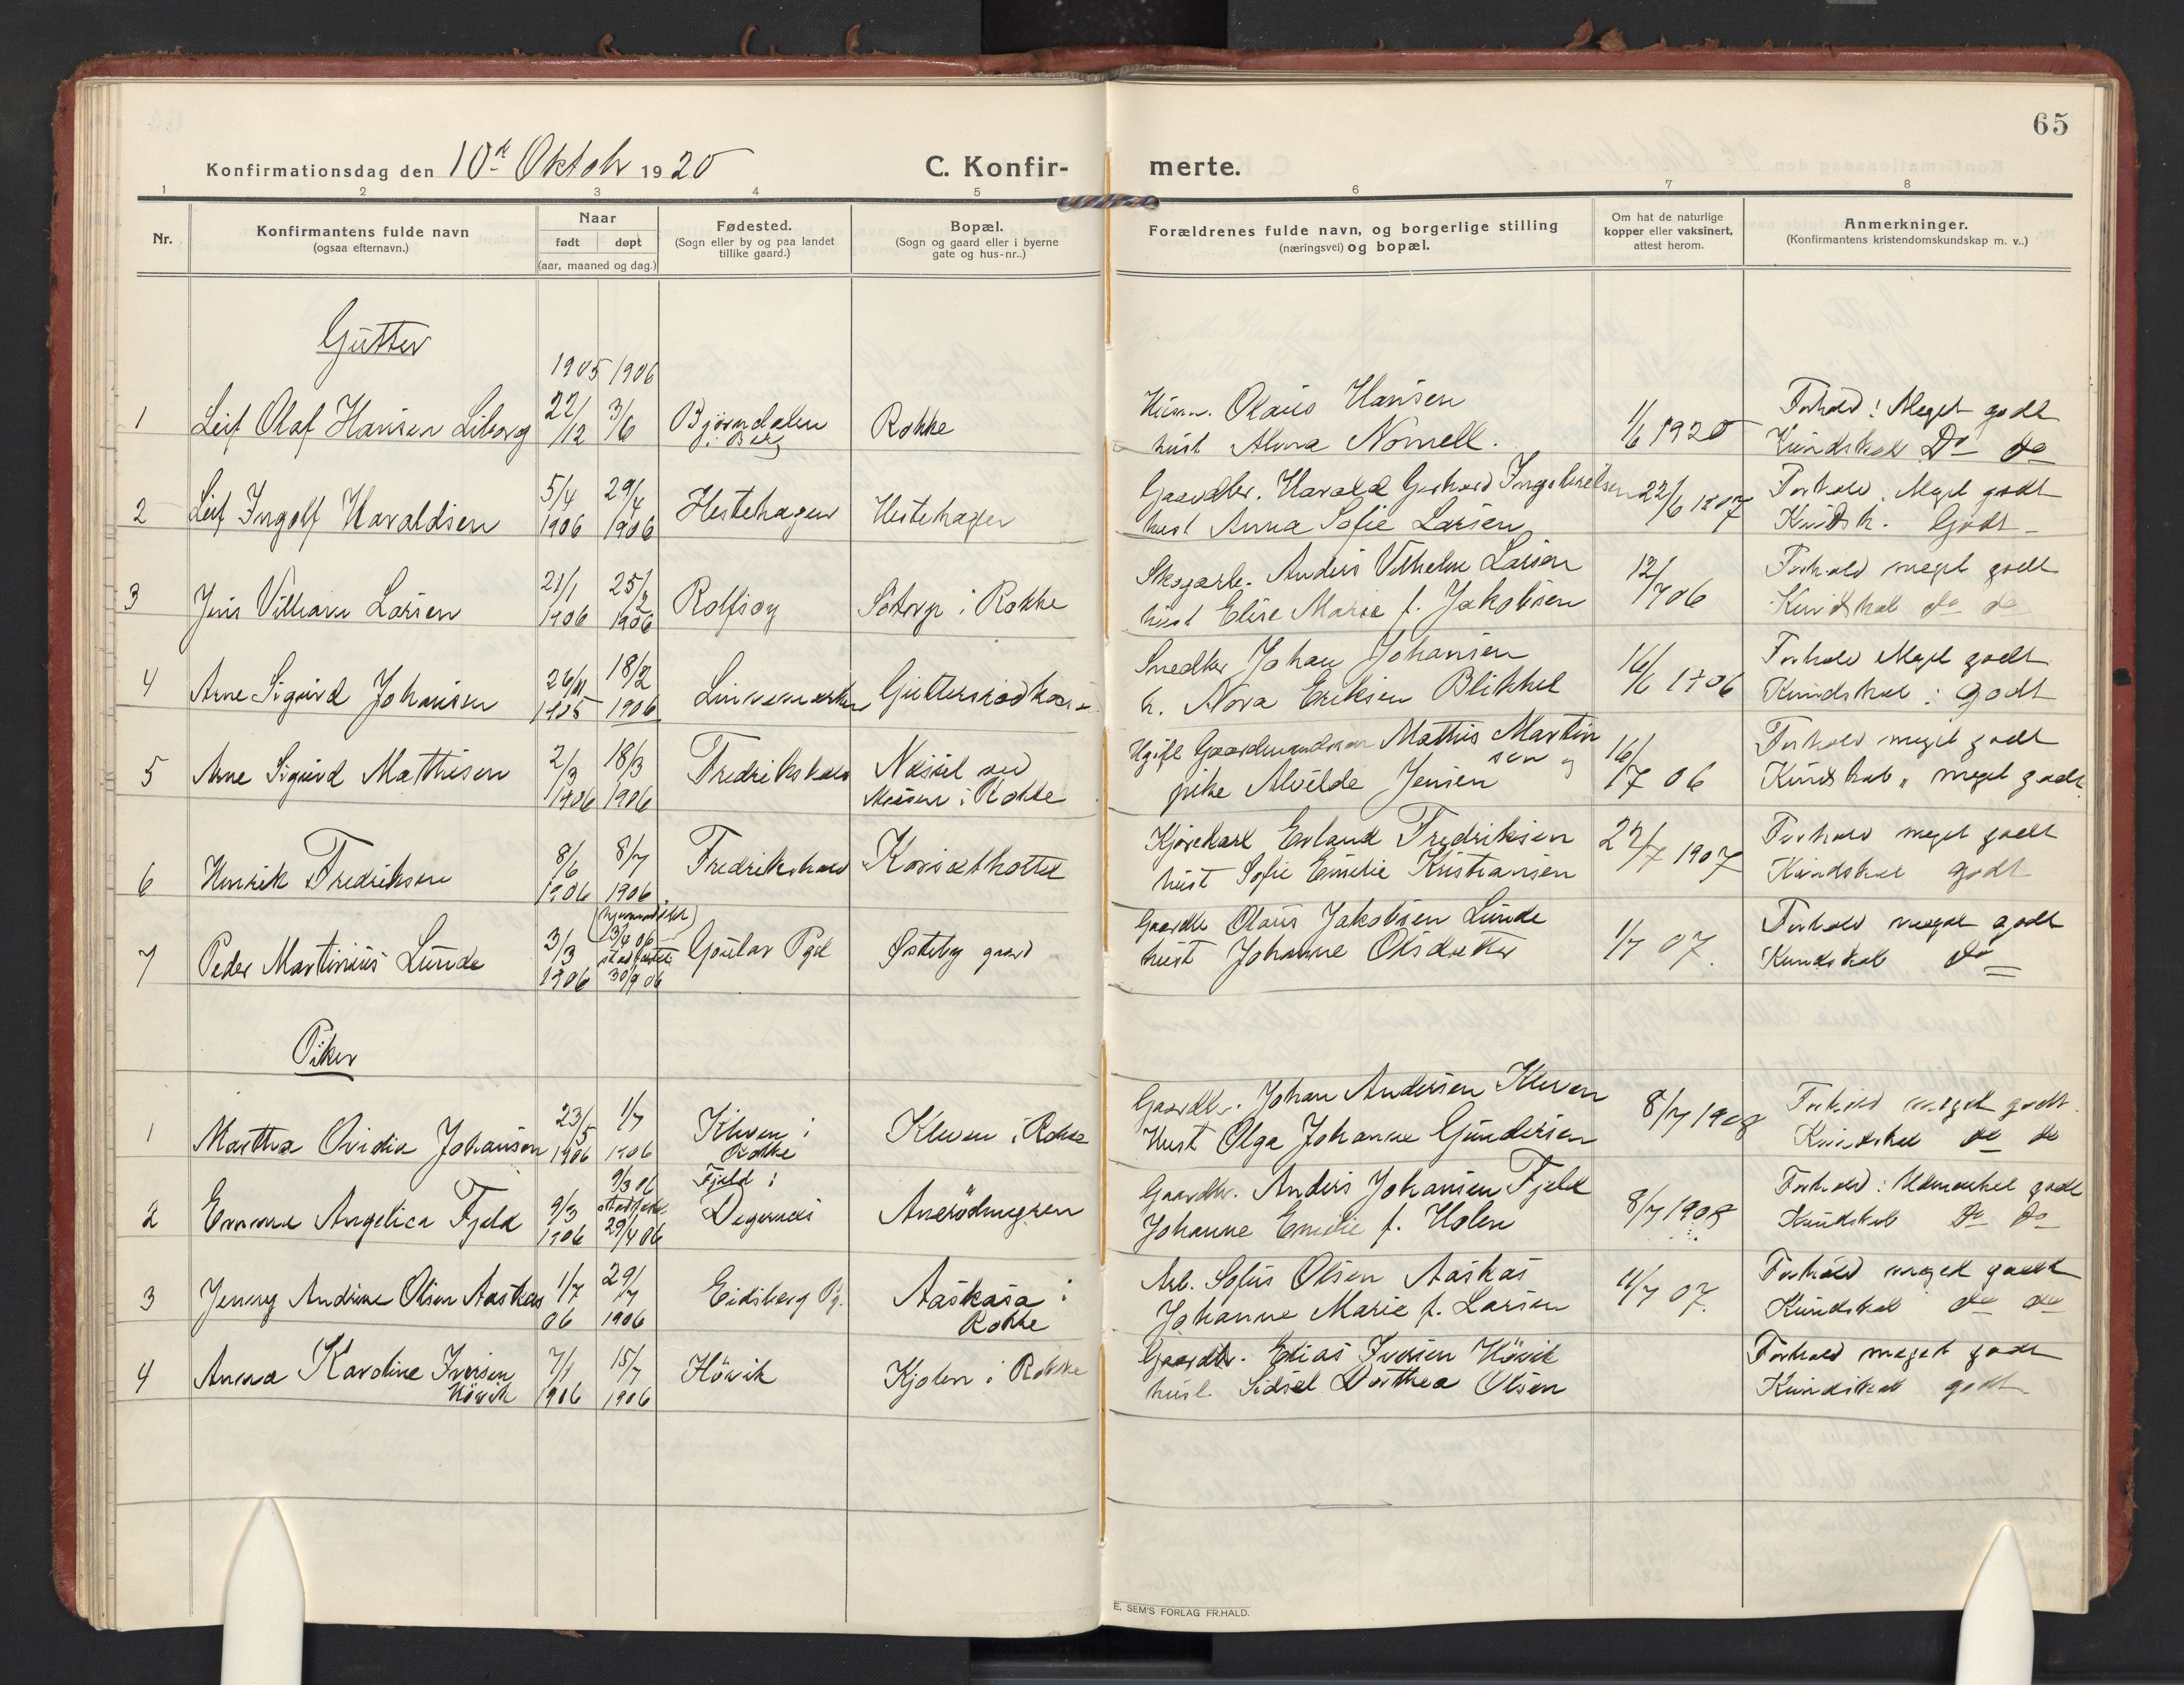 65
Konfirmationsdag den 10de Oktob 1920
C. Konfir-
merte.
1 2 3 4 5 6 7 8
Nr.
Konfirmantens fulde navn
(ogsaa efternavn.)
Naar
født døpt
(aar, maaned og dag.)
Fødested.
(Sogn eller by og paa landet
tillike gaard.)
Bopæl.
(Sogn og gaard eller i byerne
gate og hus-nr..)
Forældrenes fulde navn, og borgerlige stilling
(næringsvei) og bopæl.
Om hat de naturlige
kopper eller vaksinert,
attest herom.
Anmerkninger.
(Konfirmantens kristendomskundskap m. v..)
Gutter
1905 1906
1 Leif Olaf Hansen Liborg 22/12 3/6 Bjørndalen Rokke
i Berg
Olaus Hansen
hust Alma Nornell.
1/6 1920
Forhold: Meget godt
Kundskab Do do
2 Leif Ingolf Haraldsen 5/4 1906 29/4 1906 Hestehagen Hestehagen
Gaardbr. Harald Gerhard Ingebretsen
hust Anna Sofie Larsen
22/6 1907
Forhold. Meget godt
Kundsk. Godt
3 Jens Villiam Larsen 21/1 1906 25/2 1906 Rolfsøy Sotorp i Rokke
Skogarb. Anders Vilhelm Larsen
hust Elise Marie f. Jakobsen
12/7 06
Forhold meget godt
Kundskab do do
4 Arne Sigurd Johansen 26/11 1905 18/2 1906
Snedker Johan Johansen
h. Nora Eriksen Blikket
16/6 1906
Forhold Meget godt
Kundskab: godt
5 Arne Sigurd Matthisen 2/3 1906 18/3 1906 Fredrikshald
Moseen i Rokke
Ugift Gaardmandssøn Mathis Martin
sen og
pike Alvilde Jensen
16/7 06
Forhold meget godt
Kundskab, meget godt
6 Henrik Fredriksen 8/6 1906 8/7 1906 Fredrikshald
Kjørekarl Erland Fredriksen
hust Sofie Emilie Kristiansen
22/7 1907
Forhold meget godt
Kundskab godt
7 Peder Martinius Lunde 3/3 1906 (hjemmedøbt) 3/4 06 stadfæstet 30/9 06 Pgd Østeby gaard
Gaardbr Olaus Jakobsen Lunde
hust Johanne Olsdatter
1/7 07.
Forhold meget godt
Kundskab do
Piker
1 Martha Ovidia Johansen 23/5 1906 1/7 1906 Kleven i Rokke Kleven i Rokke
Gaardbr. Johan Andersen Kleven
Hust Olga Johanne Gundersen
8/7 1908
Forhold meget godt
Kundskab do do
2 Emma Angelica Fjeld 9/3 1906 9/3 06 stadfæst 29/4 06 Fjeld i Degernes
Gaardbr. Anders Johansen Fjeld
Johanne Emilie f. Holen
8/7 1908
Forhold: Udmærket godt
Kundskab Do Do
3 Jenny Andrine Olsen Aaskas 1/7 06 29/7 1906 Eidsberg Pg. Aaskasa i
Rokke
Arb. Sofus Olsen Aaskas
Johanne Marie f. Larsen
11/7 07.
Forhold meget godt
Kundskab do do
4 Anna Karoline Iversen
Høvik
7/1 1906 15/7 1906 Høvik Kjølen i Rokke
Gaardbr. Elias Iversen Høvik
hust Sidsel Dorthea Olsen
Forhold meget godt
Kundskab godt
E. SEM'S FORLAG FR.HALD.